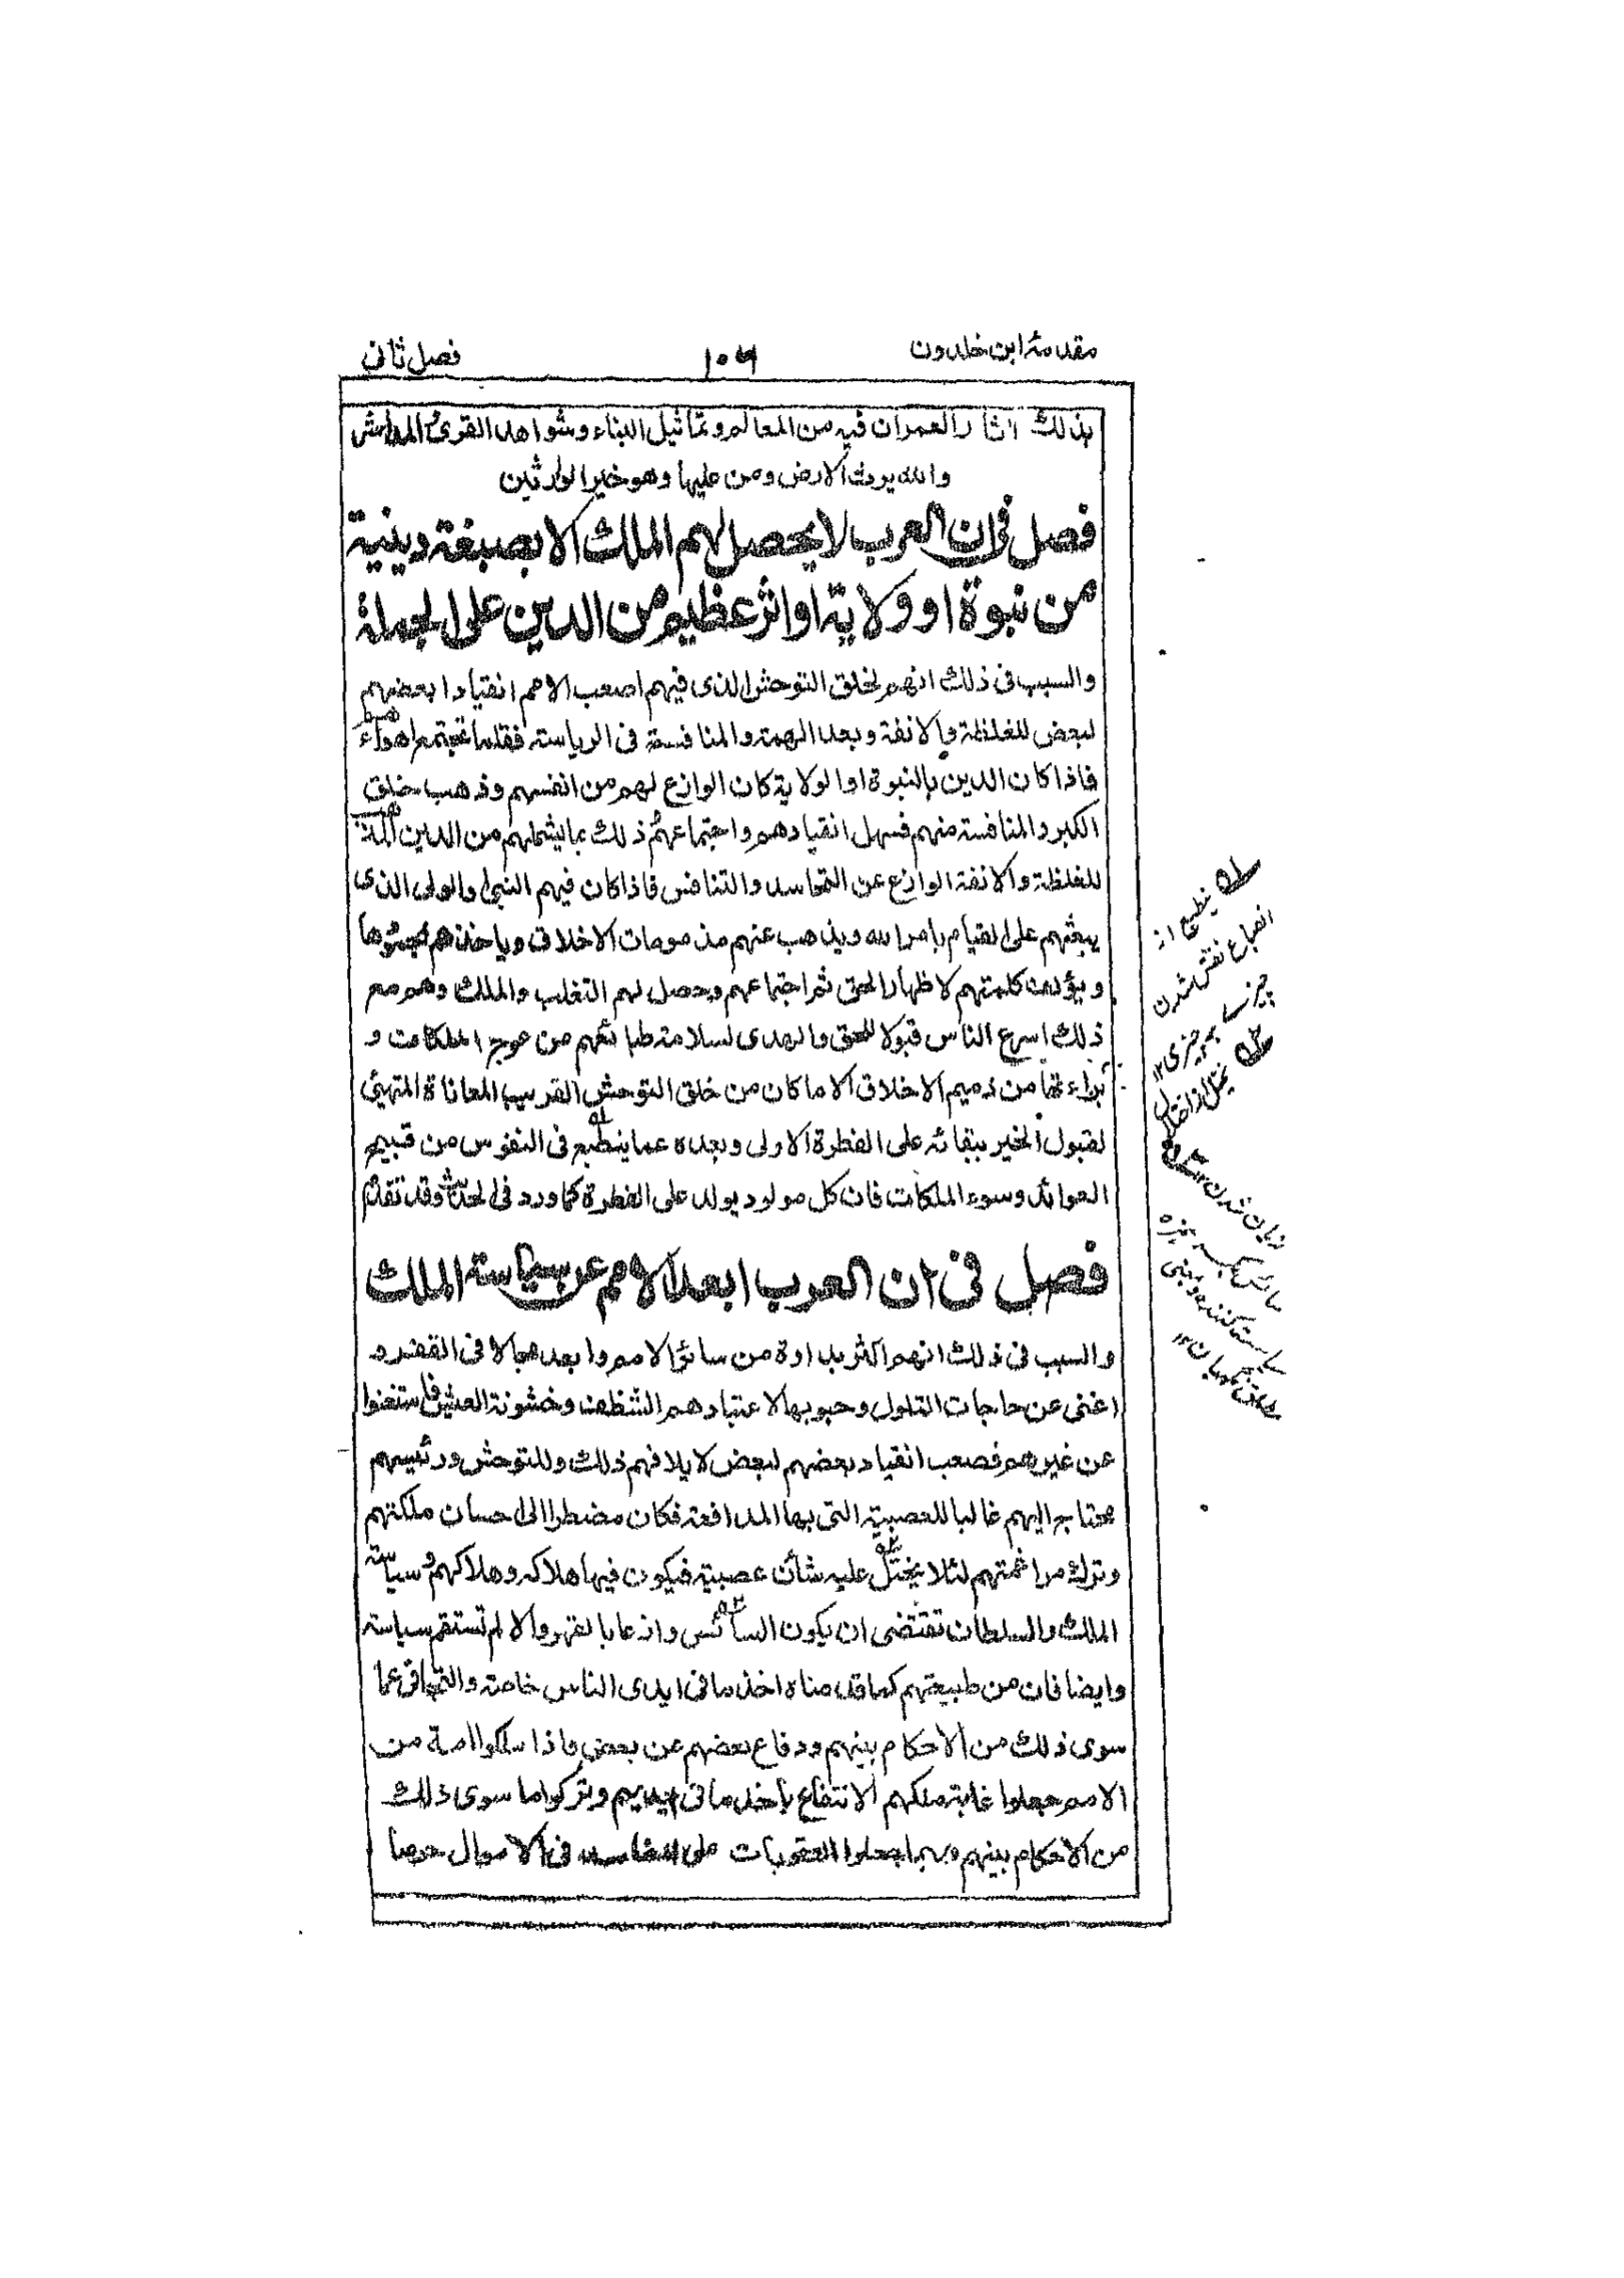 مقدمۀ ابن خلدون
۱۰۶
فصل ثانی
بذلك اثار العمران فيه من المعالم وتماثيل البناء وشواهد القرى والمداشر
والله يرث الارض ومن عليها وهو خير الوارثين
فصل فى ان العرب لا يحصل لهم الملك الا بصبغة دينية
من نبوة او ولاية او اثر عظيم من الدين على الجملة
والسبب فى ذلك انهم لخلق التوحش الذى فيهم اصعب الامم انقيادا بعضهم
لبعض للغلظة والانفة وبعد الهمة والمنافسة فى الرياسة فقلما تجتمع اهواءهم
فاذا كان الدين بالنبوة او الولاية كان الوازع لهم من انفسهم وذهب خلق
الكبر والمنافسة منهم فسهل انقيادهم واجتماعهم وذلك بما يشملهم من الدين المذهب
للغلظة والانفة الوازع عن التحاسد والتنافس فاذا كان فيهم النبى او الولى الذى
يبعثهم على القيام بامر الله ويذهب عنهم مذمومات الاخلاق وياخذهم بمحمودها
ويؤلف كلمتهم لاظهار الحق ثم اجتماعهم وحصل لهم التغلب والملك وهم مع
ذلك اسرع الناس قبولا للحق والهدى لسلامة طبائعهم من عوج الملكات و
براءتها من ذميم الاخلاق الا ما كان من خلق التوحش القريب المعاناة المتهيئ
لقبول الخير ببقائه على الفطرة الاولى وبعده عما ينطبع فى النفوس من قبيح
العوائد وسوء الملكات فان كل مولود يولد على الفطرة كما ورد فى الحديث وقد تقدم
فصل فى ان العرب ابعد الامم عن سياسة الملك
والسبب فى ذلك انهم اكثر بداوة من سائر الامم وابعد مجالا فى القفر و
اغنى عن حاجات التلول وحبوبها لاعتيادهم الشظف وخشونة العيش فاستغنوا
عن غيرهم فصعب انقياد بعضهم لبعض لايلافهم ذلك وللتوحش ورئيسهم
محتاج اليهم غالبا للعصبية التى بها المدافعة فكان مضطرا الى احسان ملكتهم
وترك مراغمتهم لئلا يختل عليه شأن عصبيته فيكون فيها هلاكه وهلاكهم وسياسة
الملك والسلطان تقتضى ان يكون السائس وازعا بالقهر والا لم تستقم سياسته
وايضا فان من طبيعتهم كما قدمناه اخذ ما فى ايدى الناس خاصة والتجافى عما
سوى ذلك من الاحكام بينهم ودفاع بعضهم عن بعض فاذا ملكوا امة من
الامم جعلوا غاية ملكهم الانتفاع باخذ ما فى ايديهم وتركوا ما سوى ذلك
من الاحكام بينهم وربما جعلوا العقوبات على المفاسد فى الاموال حرصا
ينطبع از
انطباع نقش شدن
چیزے بچیزی ۱۲
یختل از اختلال
زیان شدن ۱۲